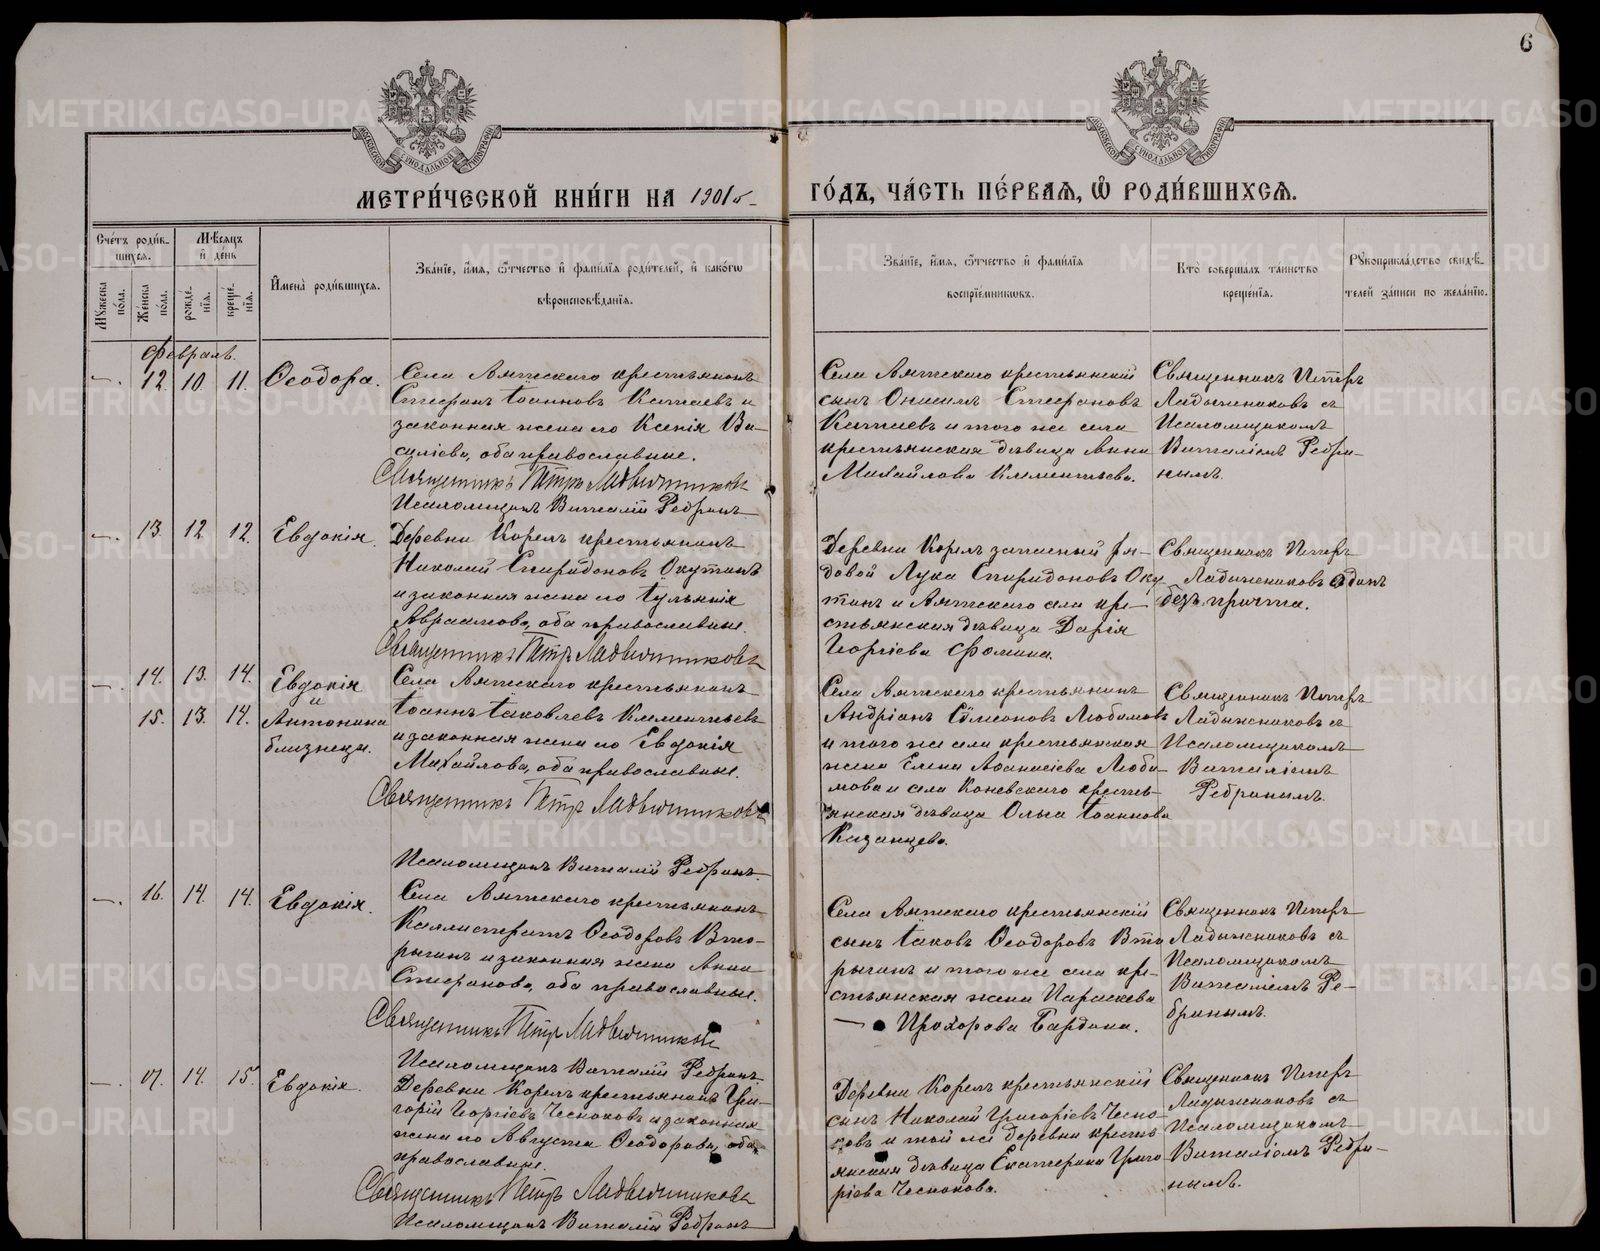 6
МЕТРИ́ЧЕСКОЙ КНИ́ГИ НА 1901й
ГО́ДЪ, ЧА́СТЬ ПЕ́РВАЯ, Ѽ РОДИ́ВШИХСЯ.
Сче́тъ роди́в-
шихся.
Мѣ́сяцъ
и҆ де́нь
Му́жеска по́ла.
Же́нска по́ла.
рожде́нїя.
креще́нїя.
И҆мена̀ роди́вшихся.
Зва́нїе, и҆́мя, ѻ҆́тчество и҆ фами́лїя роди́телей, и҆ како́гѡ
вѣроисповѣ́данїя.
Зва́нїе, и҆́мя, ѻ҆́тчество и҆ фами́лїя
воспрїе́мникѡвъ.
Кто̀ соверша́лъ та́инство
креще́нїя.
Рꙋкоприкла́дство свидѣ́-
телей за́писи по жела́нїю.
Февраль.
—. 12. 10. 11. Ѳеодора.
Села Аятскаго крестьянинъ
Стефанъ Іоанновъ Катаевъ и
законная жена его Ксенія Ва-
силіева, оба православные.
Священникъ Петръ Ладыжниковъ
Псаломщикъ Виталій Ребринъ
Села Аятскаго крестьянскій
сынъ Онисимъ Стефановъ
Катаевъ и того же села
крестьянская дѣвица Анна
Михайлова Клементьева.
Священникъ Петръ
Ладыжниковъ съ
Псаломщикомъ
Виталіемъ Ребри-
нымъ.
—. 13. 12. 12. Евдокія.
Деревни Корелъ крестьянинъ
Николай Спиридоновъ Окутинъ
и законная жена его Іуліанія
Авраамова, оба православные.
Священникъ Петръ Ладыжниковъ
Деревни Корелъ запасный ря-
довой Лука Спиридоновъ Оку
тинъ и Аятскаго села кре-
стьянская дѣвица Дарія
Георгіева Фомина.
Священникъ Петръ
Ладыжниковъ одинъ
безъ причта.
—. 14. 13. 14. Евдокія
и
15. 13. 14. Антонина
близнецы.
Села Аятскаго крестьянинъ
Іоаннъ Іаковлевъ Клементьевъ
и законная жена его Евдокія
Михайлова, оба православные.
Священникъ Петръ Ладыжниковъ
Псаломщикъ Виталій Ребринъ.
Села Аятскаго крестьянинъ
Андріанъ Сѵмеоновъ Любимовъ
и того же села крестьянская
жена Елена Аѳанасіева Люби-
мова и села Коневскаго кресть-
янская дѣвица Ольга Іоаннова
Казанцева.
Священникъ Петръ
Ладыжниковъ съ
Псаломщикомъ
Виталіемъ
Ребринымъ.
—. 16. 14. 14. Евдокія.
Села Аятскаго крестьянинъ
Каллистратъ Ѳеодоровъ Вто-
рыгинъ и законная жена Анна
Стефанова, оба православные.
Священникъ Петръ Ладыжниковъ
Псаломщикъ Виталій Ребринъ.
Села Аятскаго крестьянскій
сынъ Іаковъ Ѳеодоровъ Вто
рыгинъ и того же села кре-
стьянская жена Параскева
— Прохорова Бардина.
Священникъ Петръ
Ладыжниковъ съ
Псаломщикомъ
Виталіемъ Ре-
бринымъ.
—. 17. 14. 15. Евдокія.
Деревни Корелъ крестьянинъ Гри-
горій Георгіевъ Чесноковъ и законная
жена его Августа Ѳеодорова, оба
православные.
Священникъ Петръ Ладыжниковъ
Псаломщикъ Виталій Ребринъ
Деревни Корелъ крестьянскій
сынъ Николай Григоріевъ Чесно-
ковъ и той же деревни кресть
янская дѣвица Екатерина Григо
ріева Чеснокова.
Священникъ Петръ
Ладыжниковъ съ
Псаломщикомъ
Виталіемъ Ребри-
нымъ.